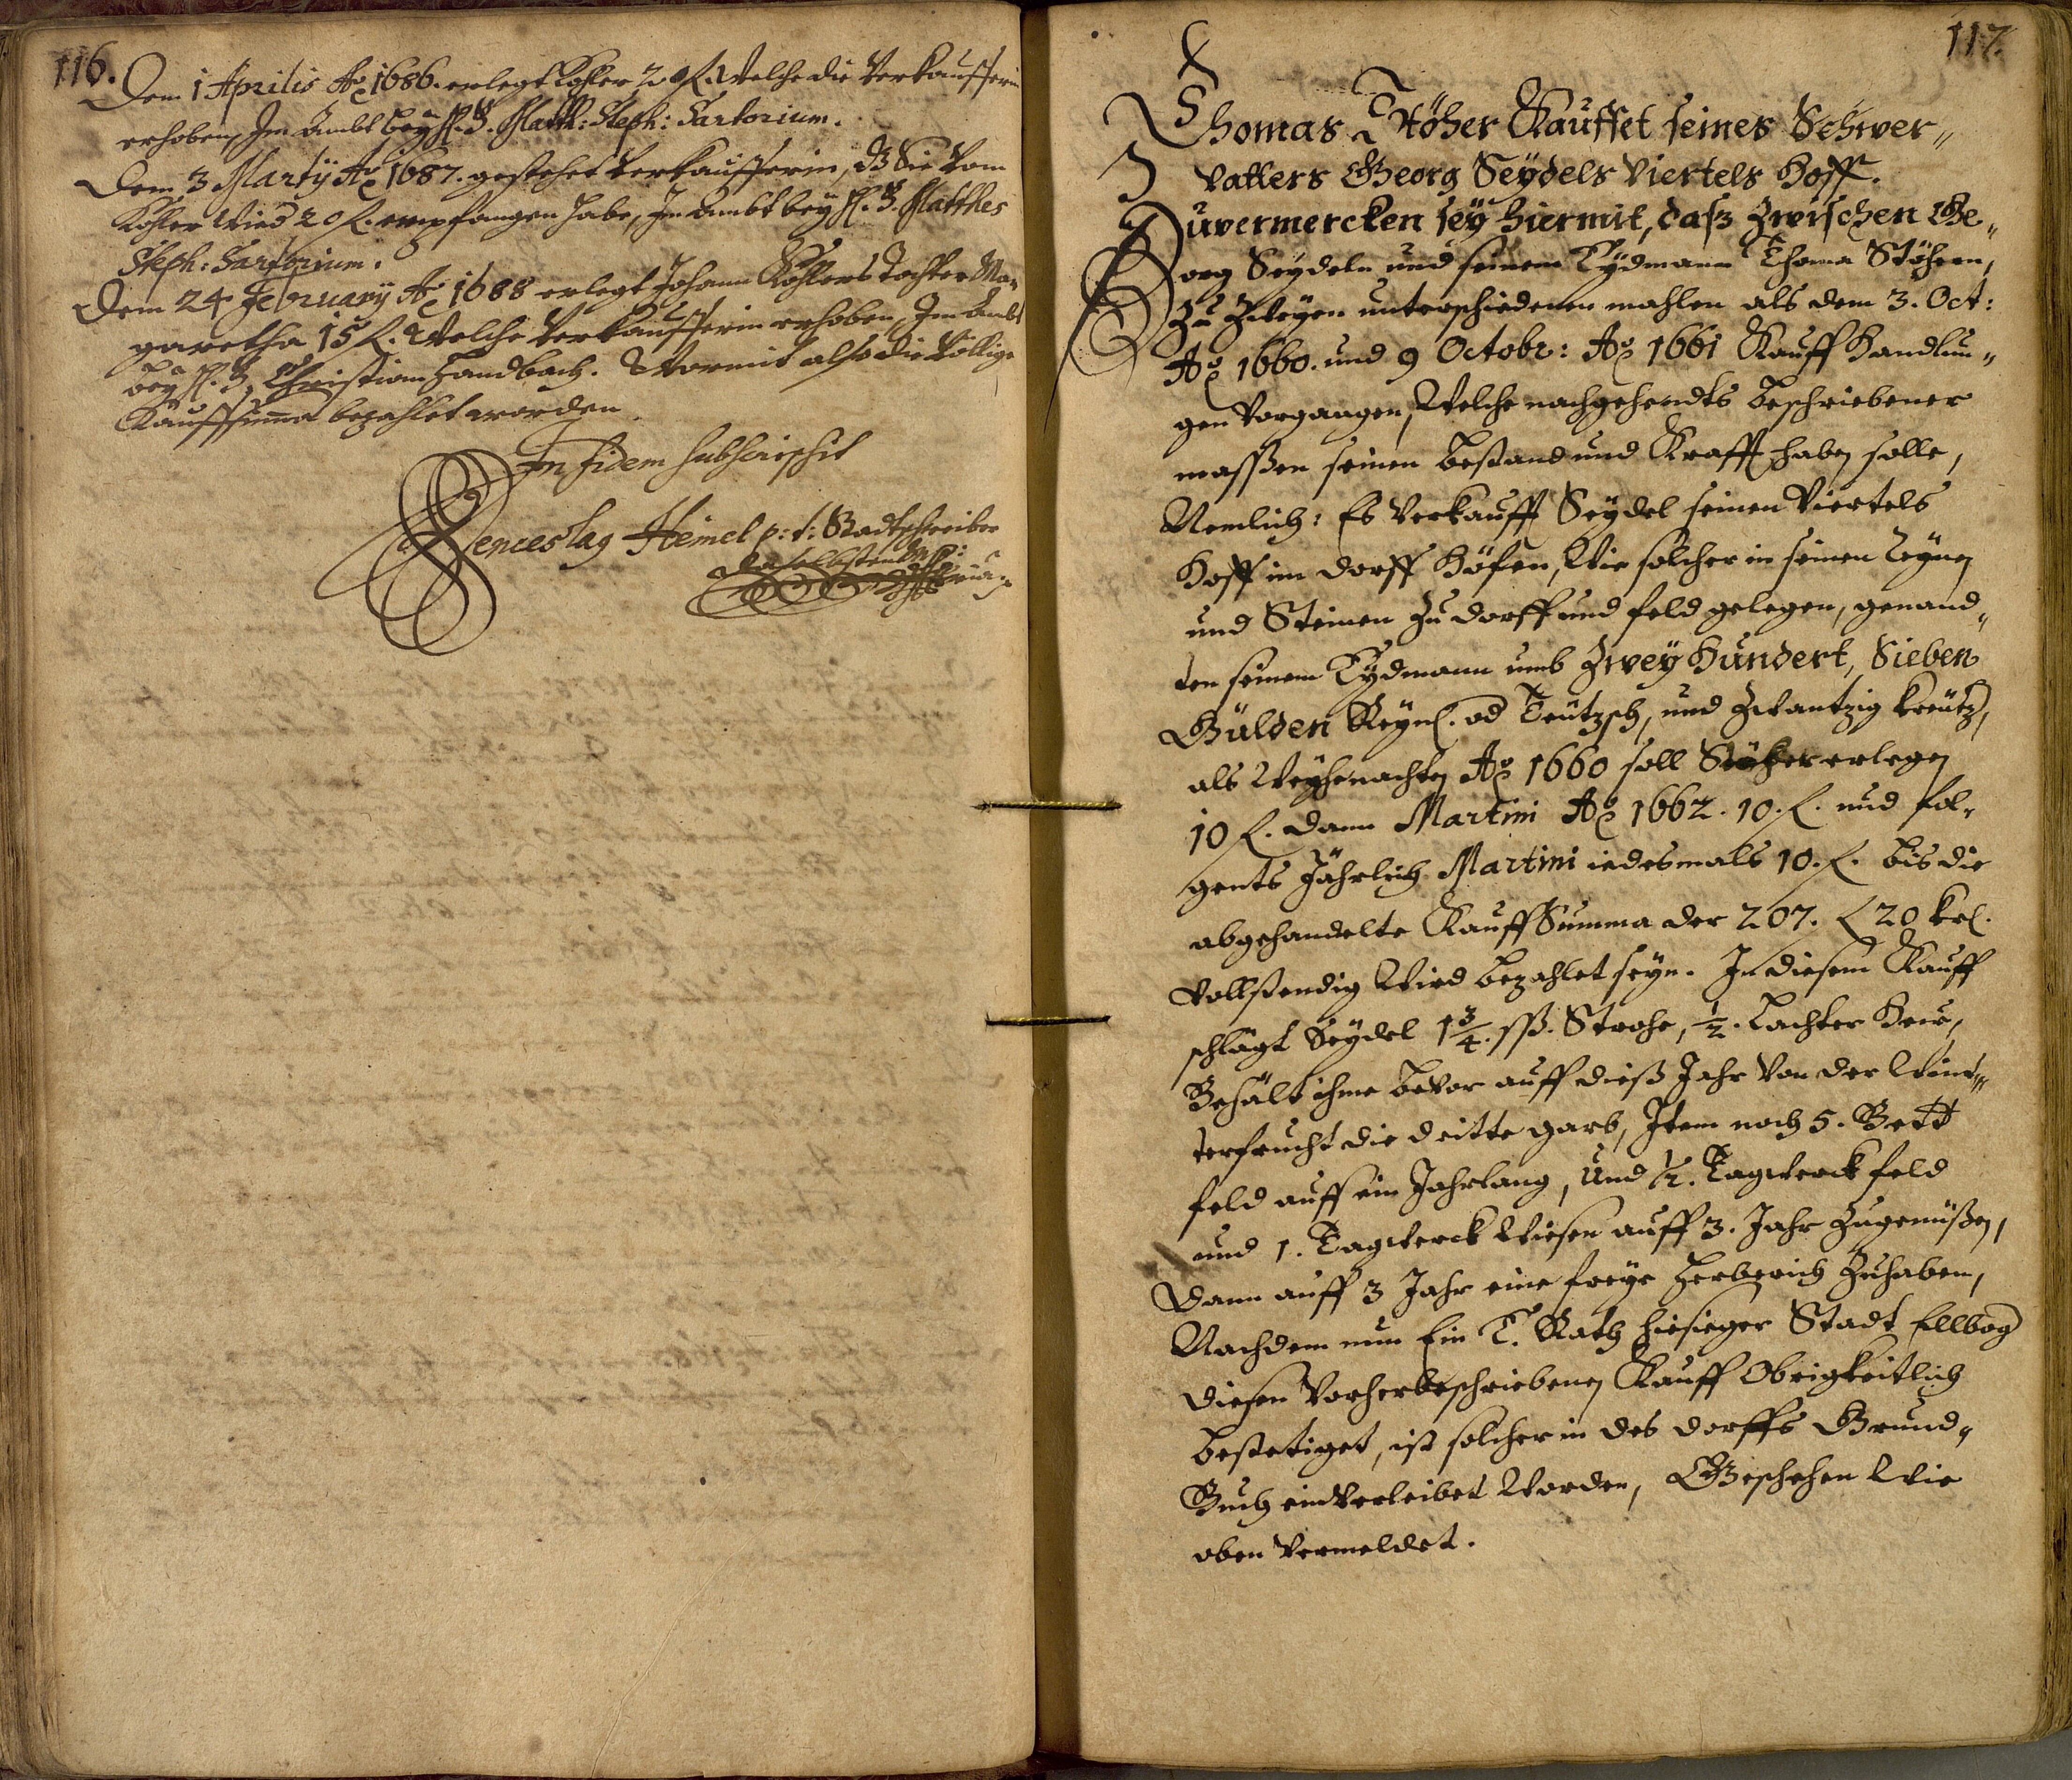 116.
Dem 1 Aprilis Ao 1686. erlegt Kohler 20 f. Welche die Verkaufferin
erhoben, Im Ambt bey H. B. Matth: Steph: Sartorium.
Dem 3 Martÿ Ao 1687. gestehet Verkaufferin, dz Sie Vom
Kohler Wied 20 f. empfangen habe, Im Ambt bey H. B. Matthes
Steph: Sartorium.
Dem 24 February Ao 1688 erlegt Johann Kohlers Tochter Mar-
garetha 15 f. Welche Verkaufferin erhoben, Im Ambt
bey H. B. Christian Handbach. Wormit also die Völlige
Kauffsuma bezahlet worden
In fidem subscripsit
Wenceslaq Heimel p: t: Stadtschreiber
daselbsten mp:
117.
Thomas Stöher Kauffet seines Schwer„
Vatters Georg Seydels Viertels Hoff.
Zuvermercken sey hiermit, dasz Zwischen Ge„
org Seydeln und seinem Eydmann Thoma Stöhern,
Zu Zweyen unterschiedenen mahlen als dem 3. Oct:
Ao 1660. und 9 Octobr: Ao 1661 Kauff Handlun„
gen Vorgangen, Welche nachgehendts beschriebener
massßen seinen bestand und Krafft haben solle,
Nemlich: Es Verkaufft Seydel seinen Viertels
Hoff im dorff Höfen, Wie solcher in seinen Reynen
und Steinen Zu dorff und feld gelegen, genand„
ten seinem Eydmann umb Zwey Hundert, Sieben
Gülden Reynl. od Teutzsch, und Zwantzig kreutz,
als Weyhenachten Ao 1660 soll Stöher erlegen
10 f. dann Martini Ao 1662. 10. f. und fol„
gents Jährlich Martini iedesmals 10. f. bis die
abgehandelte Kauff Summa der 207. f 20 krl.
Vollstendig Wird bezahlet seyn. In diesem Kauff
schlägt Seydel 1 3/4. sß. Strohe, 1/2. Lachter Heu,
Behält ihme beVor auff dieß Jahr Von der Wint„
terfrucht die dritte garb, Item noch 5. Bett
feld auff ein Jahrlang, Und 1/2. Tagwerck feld
und 1. Tagwerck Wiesen auff 3. Jahr Zugenüßen,
dann auff 3 Jahr eine freye Herberich Zuhaben,
Nachdem nun Ein E. Rath hiesieger Stadt Ellbog
diesen Vorherbeschriebenen Kauff Obrigkeitlich
bestetiget, ist solcher in des dorffs Grund„
Buch einVerleibet Worden, Geschehen Wie
oben Vermeldet.